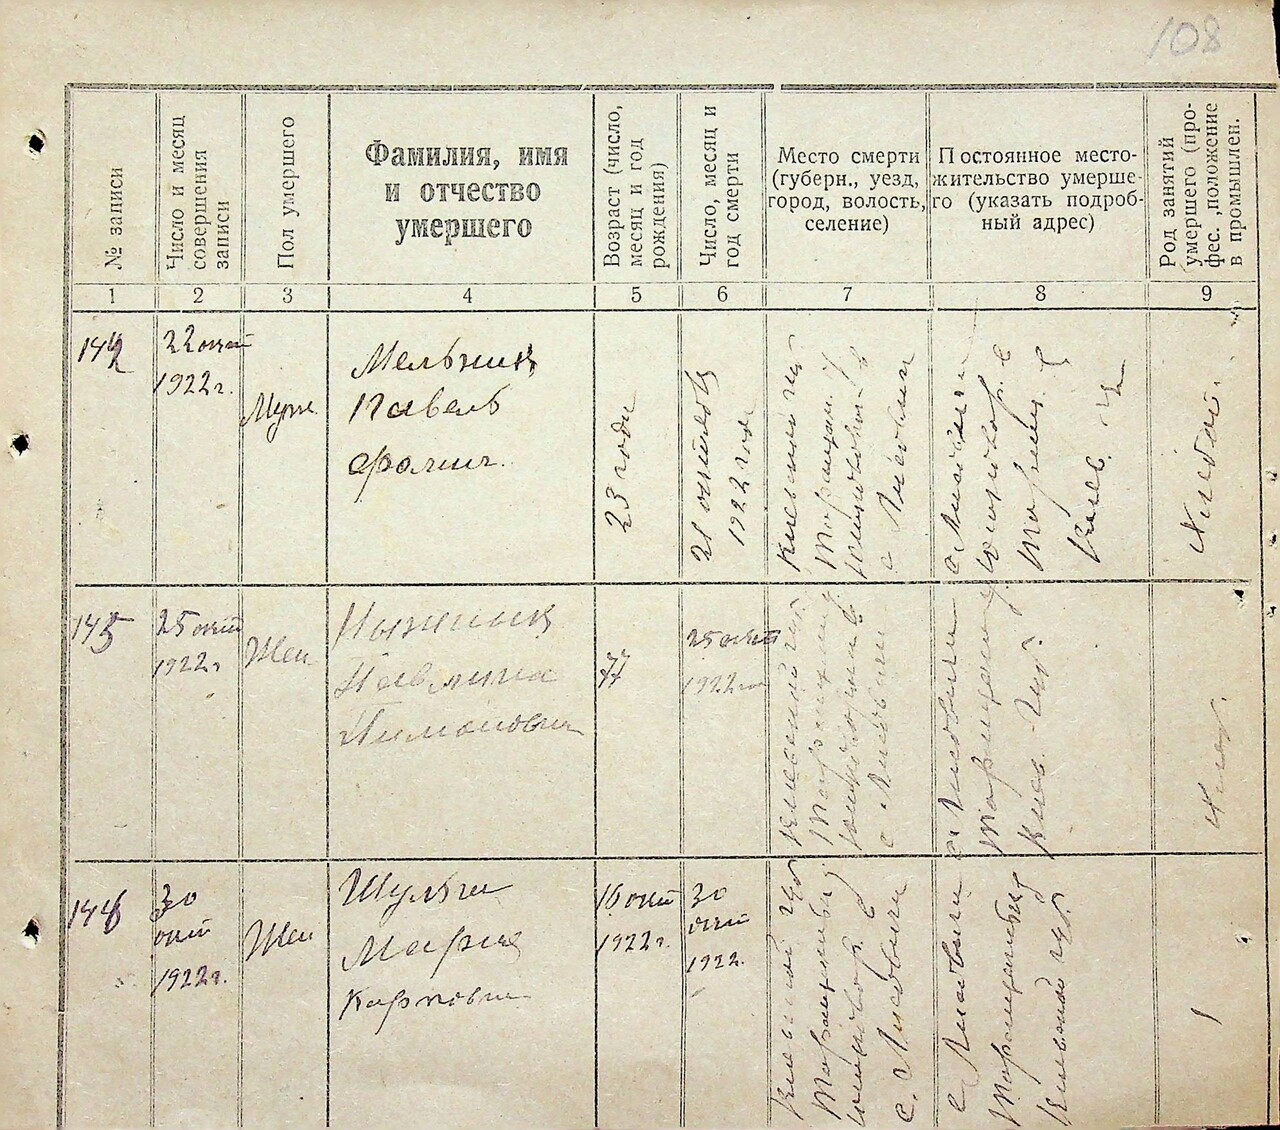 108
№ записи
Число и месяц
совершения
записи
Пол умершего
Фамилия, имя
и отчество
умершего
Возраст (число,
месяц и год
рождения)
Число, месяц и
год смерти
Место смерти
(губерн., уезд,
город, волость,
селение)
Постоянное место-
жительство умерше-
го (указать подроб-
ный адрес)
Род занятий
умершего (про-
фес., положение
в промышлен.
1 2 3 4 5 6 7 8 9
144
22 окт
1922 г.
Муж.
Мельник
Павель
Фомич.
23 годи
21 октября
1922 года
Киевской губ
Таращан. У
с Лисовичи
с Лисовичи
Таращ. У
Киев. Губ
Хлебоп.
145
25 окт
1922 г
Жен
Павлина
Тимоновна
77
25 окт
1922 го
Киевской губ
с Лисовичи
с. Лисовичи
Киев. Губ.
Хлеб.
146
30
окт
1922 г.
Жен
Шульги
Мария
Карповна
16 окт
1922 г.
30
окт
1922.
Киевской губ
с. Лисовичи
с Лисовичи
Киевской губ